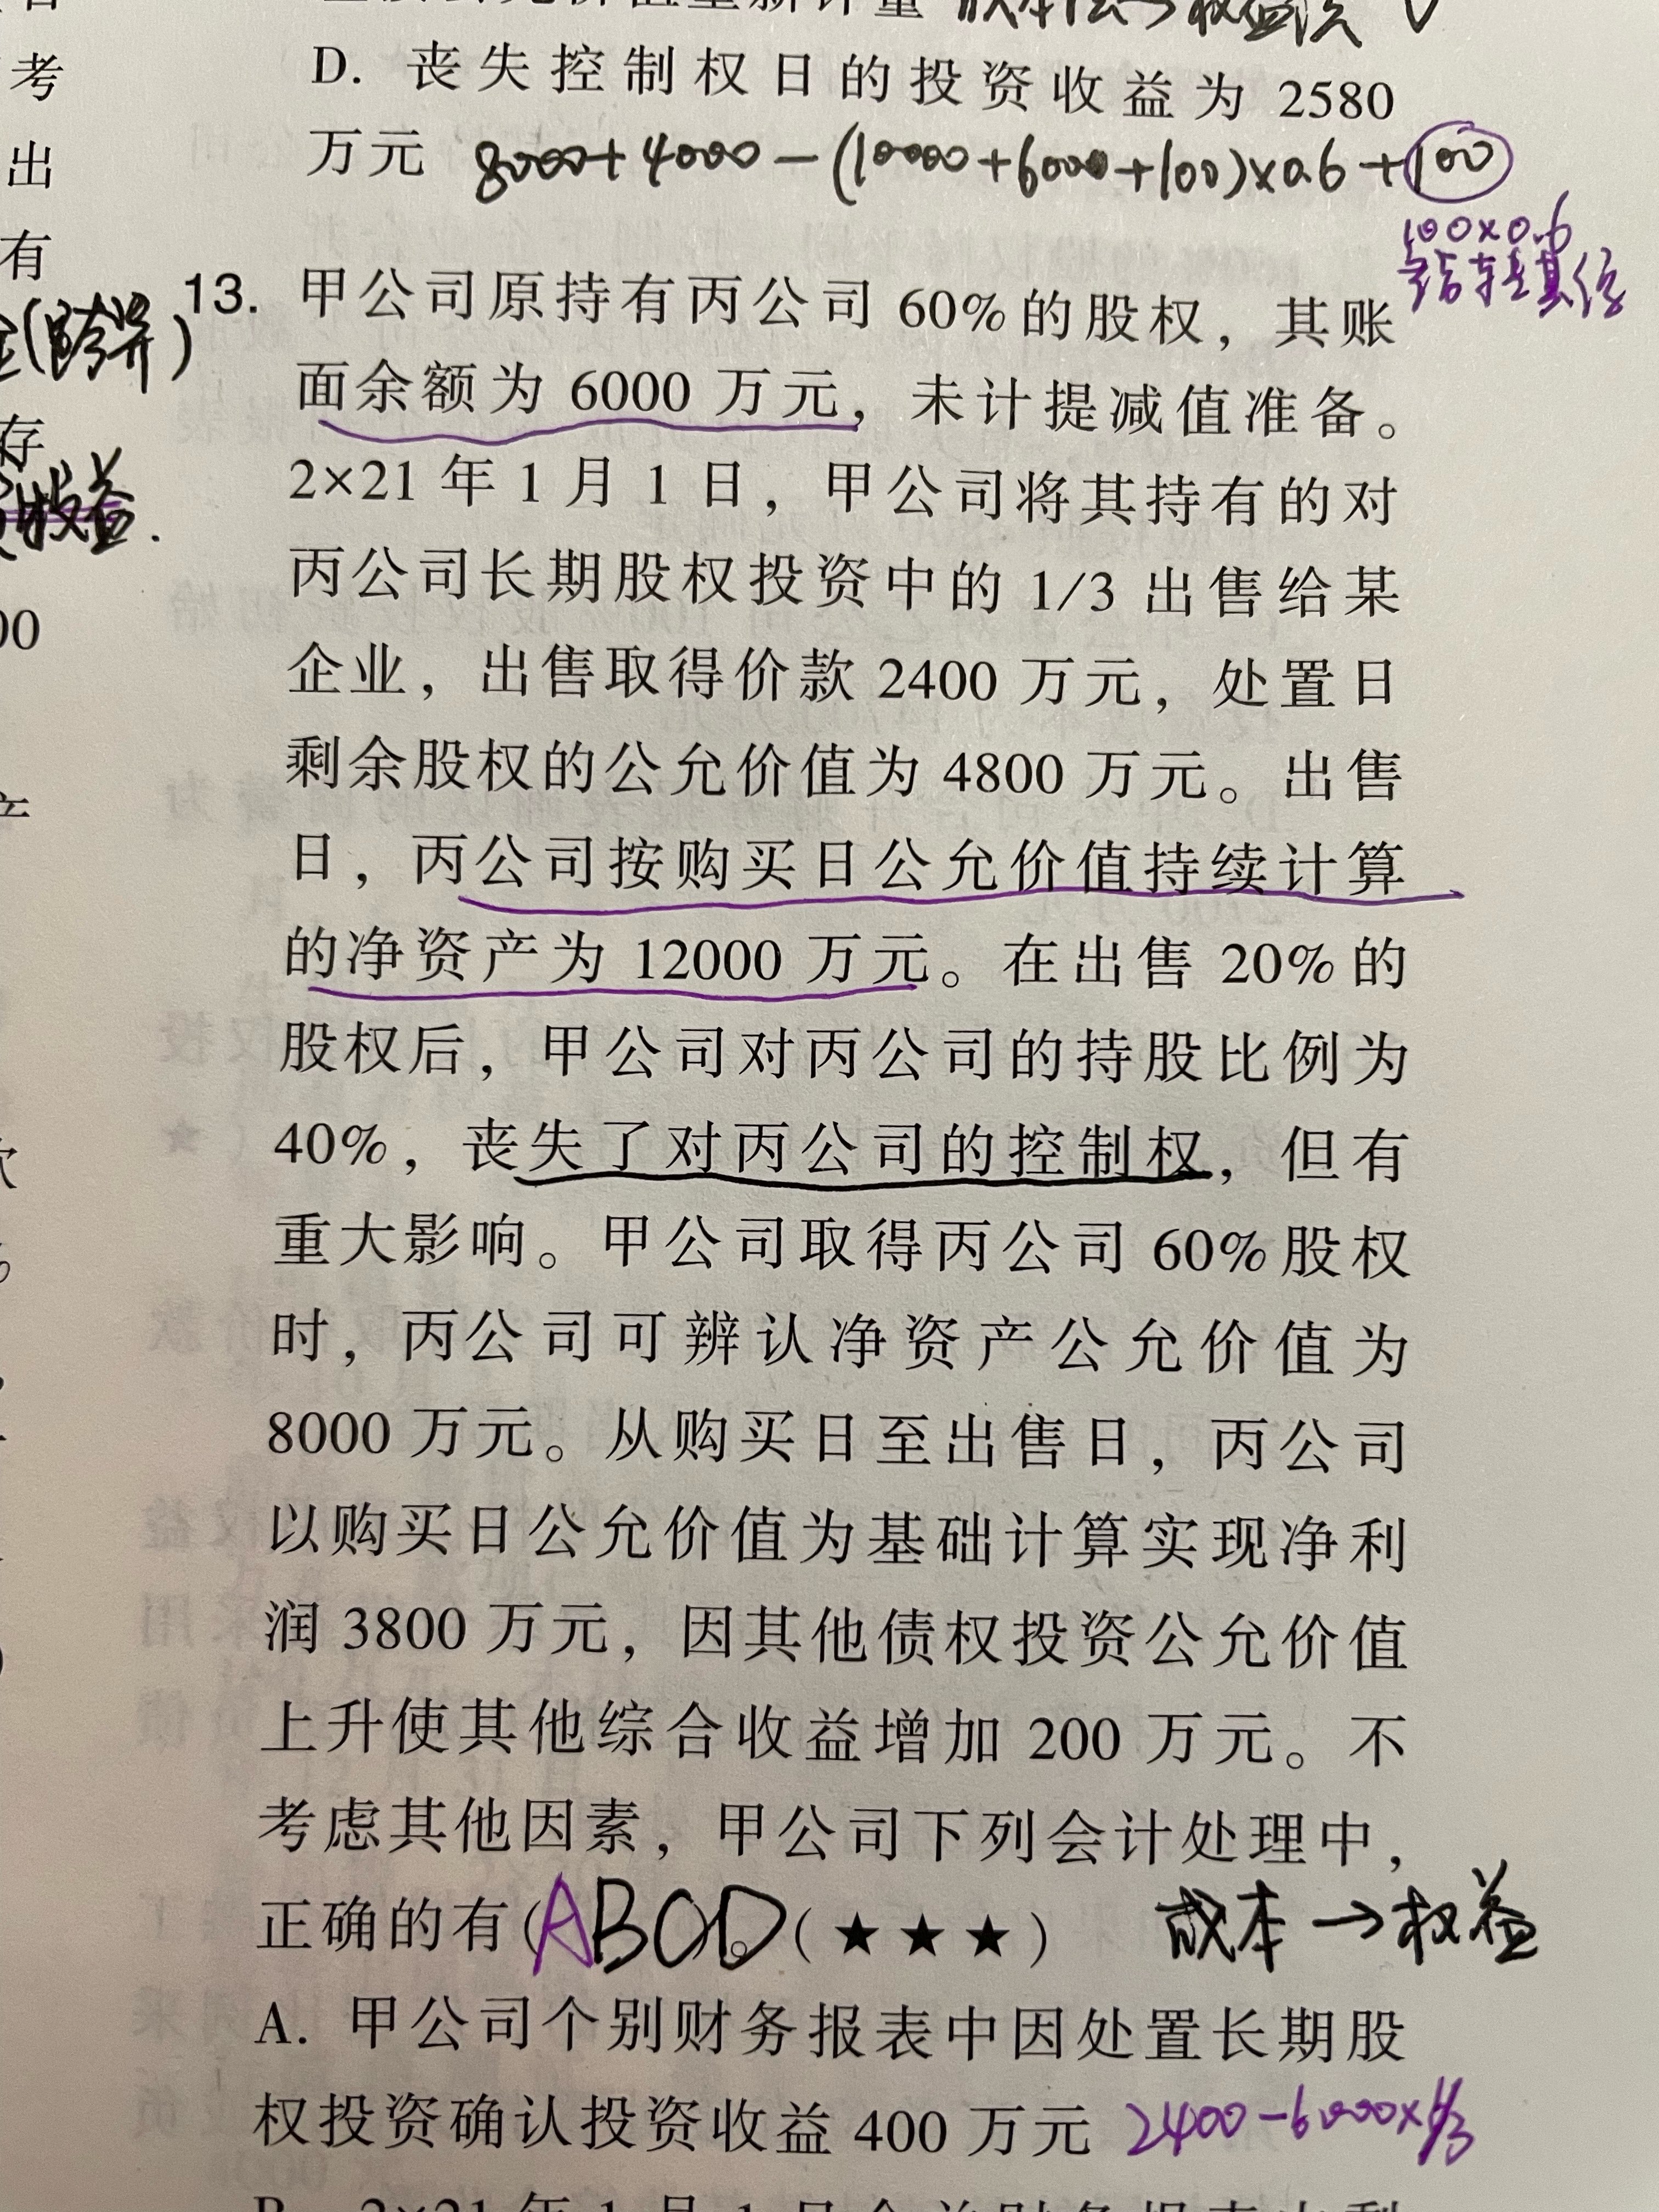 D. 丧失控制权日的投资收益为 2580
万元 8000+4000-(10000+6000+100)×0.6+100
100×0.6
考
出
有
13. 甲公司原持有丙公司 60%的股权，其账
面余额为 6000 万元，未计提减值准备。
存
2×21 年 1 月 1 日，甲公司将其持有的对
收益.
丙公司长期股权投资中的 1/3 出售给某
00
企业，出售取得价款 2400 万元，处置日
剩余股权的公允价值为 4800 万元。出售
日，丙公司按购买日公允价值持续计算
的净资产为 12000 万元。在出售 20%的
股权后，甲公司对丙公司的持股比例为
40%，丧失了对丙公司的控制权，但有
重大影响。甲公司取得丙公司 60%股权
时，丙公司可辨认净资产公允价值为
8000 万元。从购买日至出售日，丙公司
以购买日公允价值为基础计算实现净利
润 3800 万元，因其他债权投资公允价值
上升使其他综合收益增加 200 万元。不
考虑其他因素，甲公司下列会计处理中，
正确的有(ABCD)。(★★★) 成本→权益
A. 甲公司个别财务报表中因处置长期股
权投资确认投资收益 400 万元 2400-6000×1/3